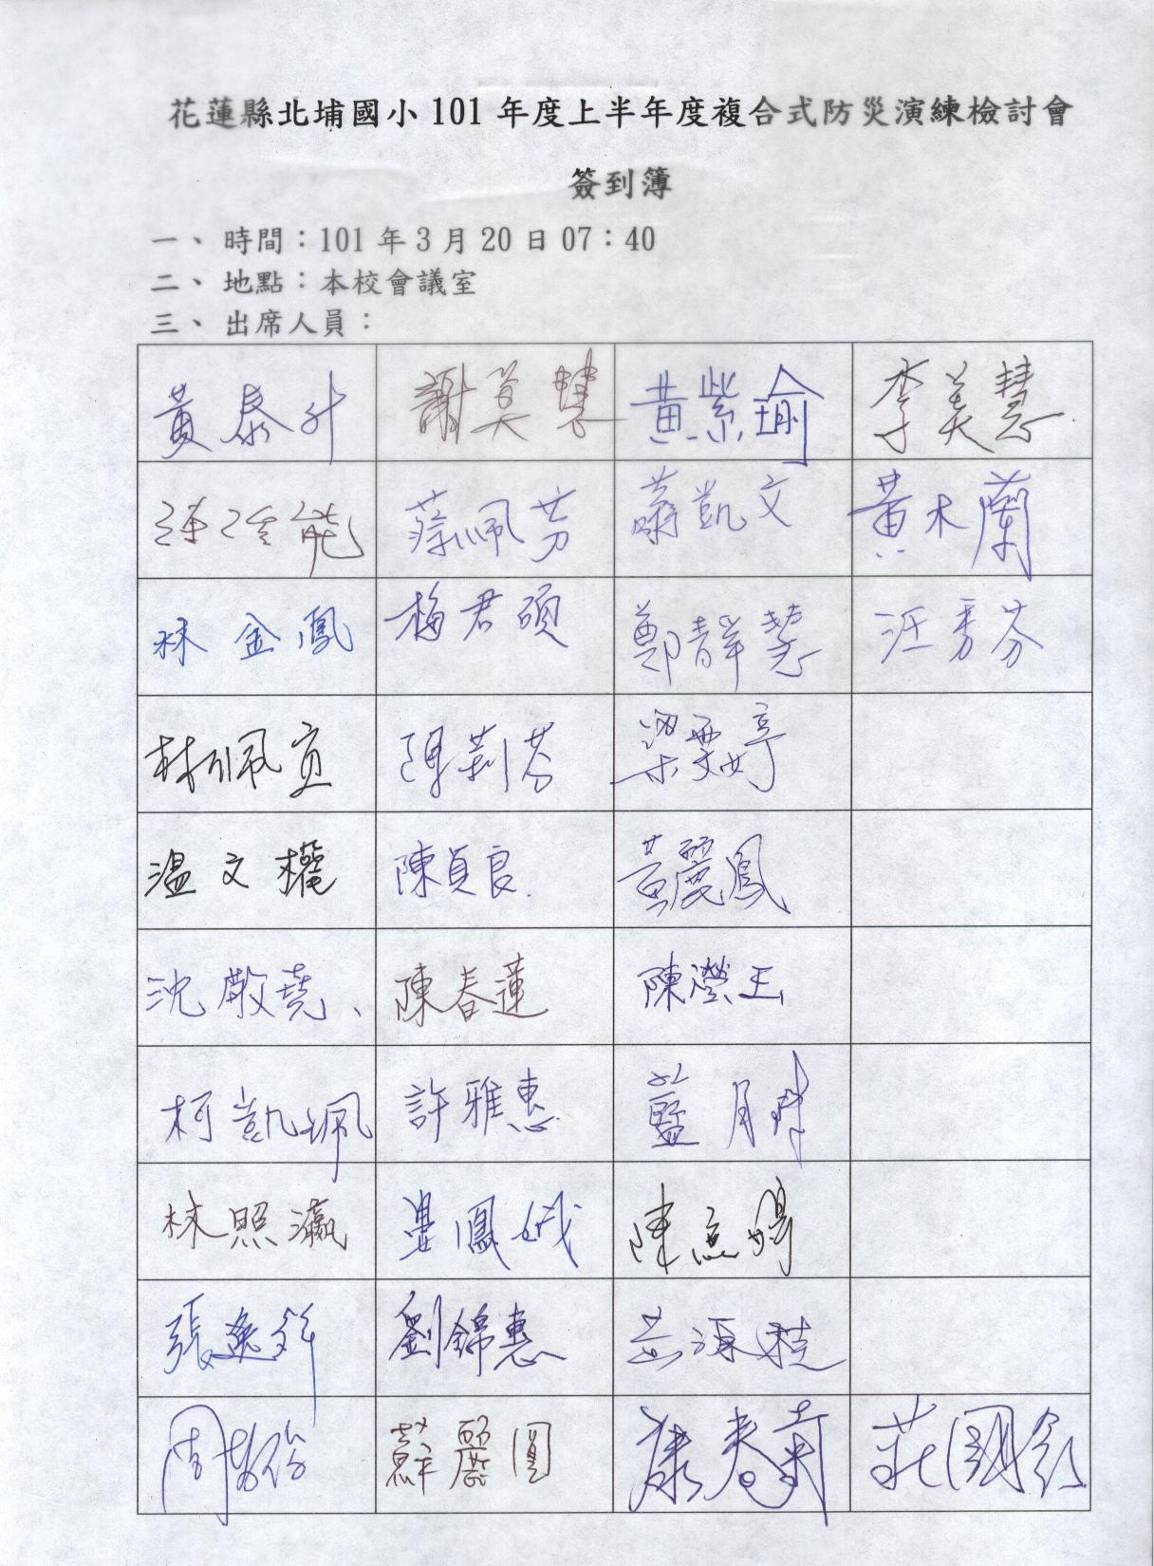 花蓮縣北埔國小101年度上半年度複合式防災演練檢討會
簽到簿
一、時間：101年3月20日07：40
二、地點：本校會議室
三、出席人員：
黃泰升 謝莫慧 黃紫瑜 李美慧
蔡佩芬 蕭凱文 黃木蘭
林金鳳 梅君碩 鄭靜慧 汪秀芬
林佩宜 陳莉芬 梁雯婷
溫文權 陳貞良 黃麗鳳
沈敬堯 陳春蓮 陳瀅玉
柯凱珮 許雅惠 藍月
林照瀛 鳳娥 陳
張逸 劉錦惠
周 蘇麗圓 康春 莊國